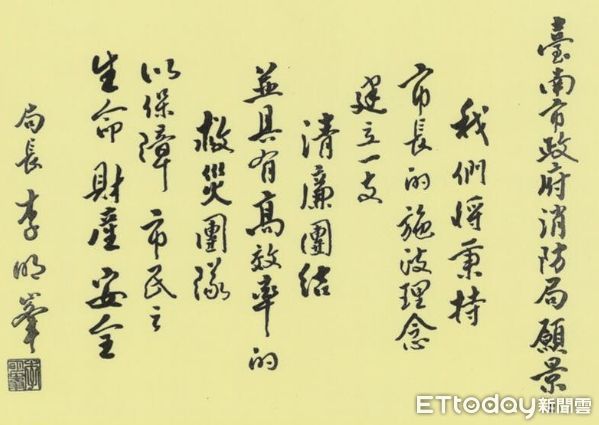 臺南市政府消防局願景
我們將秉持
市長的施政理念
建立一支
清廉團結
並具有高效率的
救災團隊
以保障市民之
生命財產安全
局長李明峯
ETtoday新聞雲